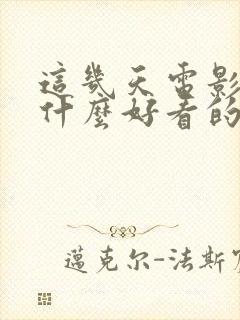 這幾天電影
什麼好看的
邁克尔-法斯宾